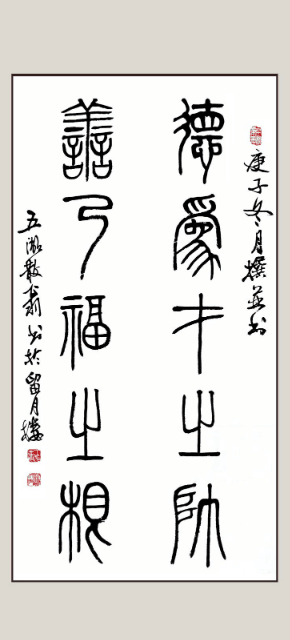 庚子冬月撰並书
德爲才之帥
善乃福之根
五湖散翁书於留月楼